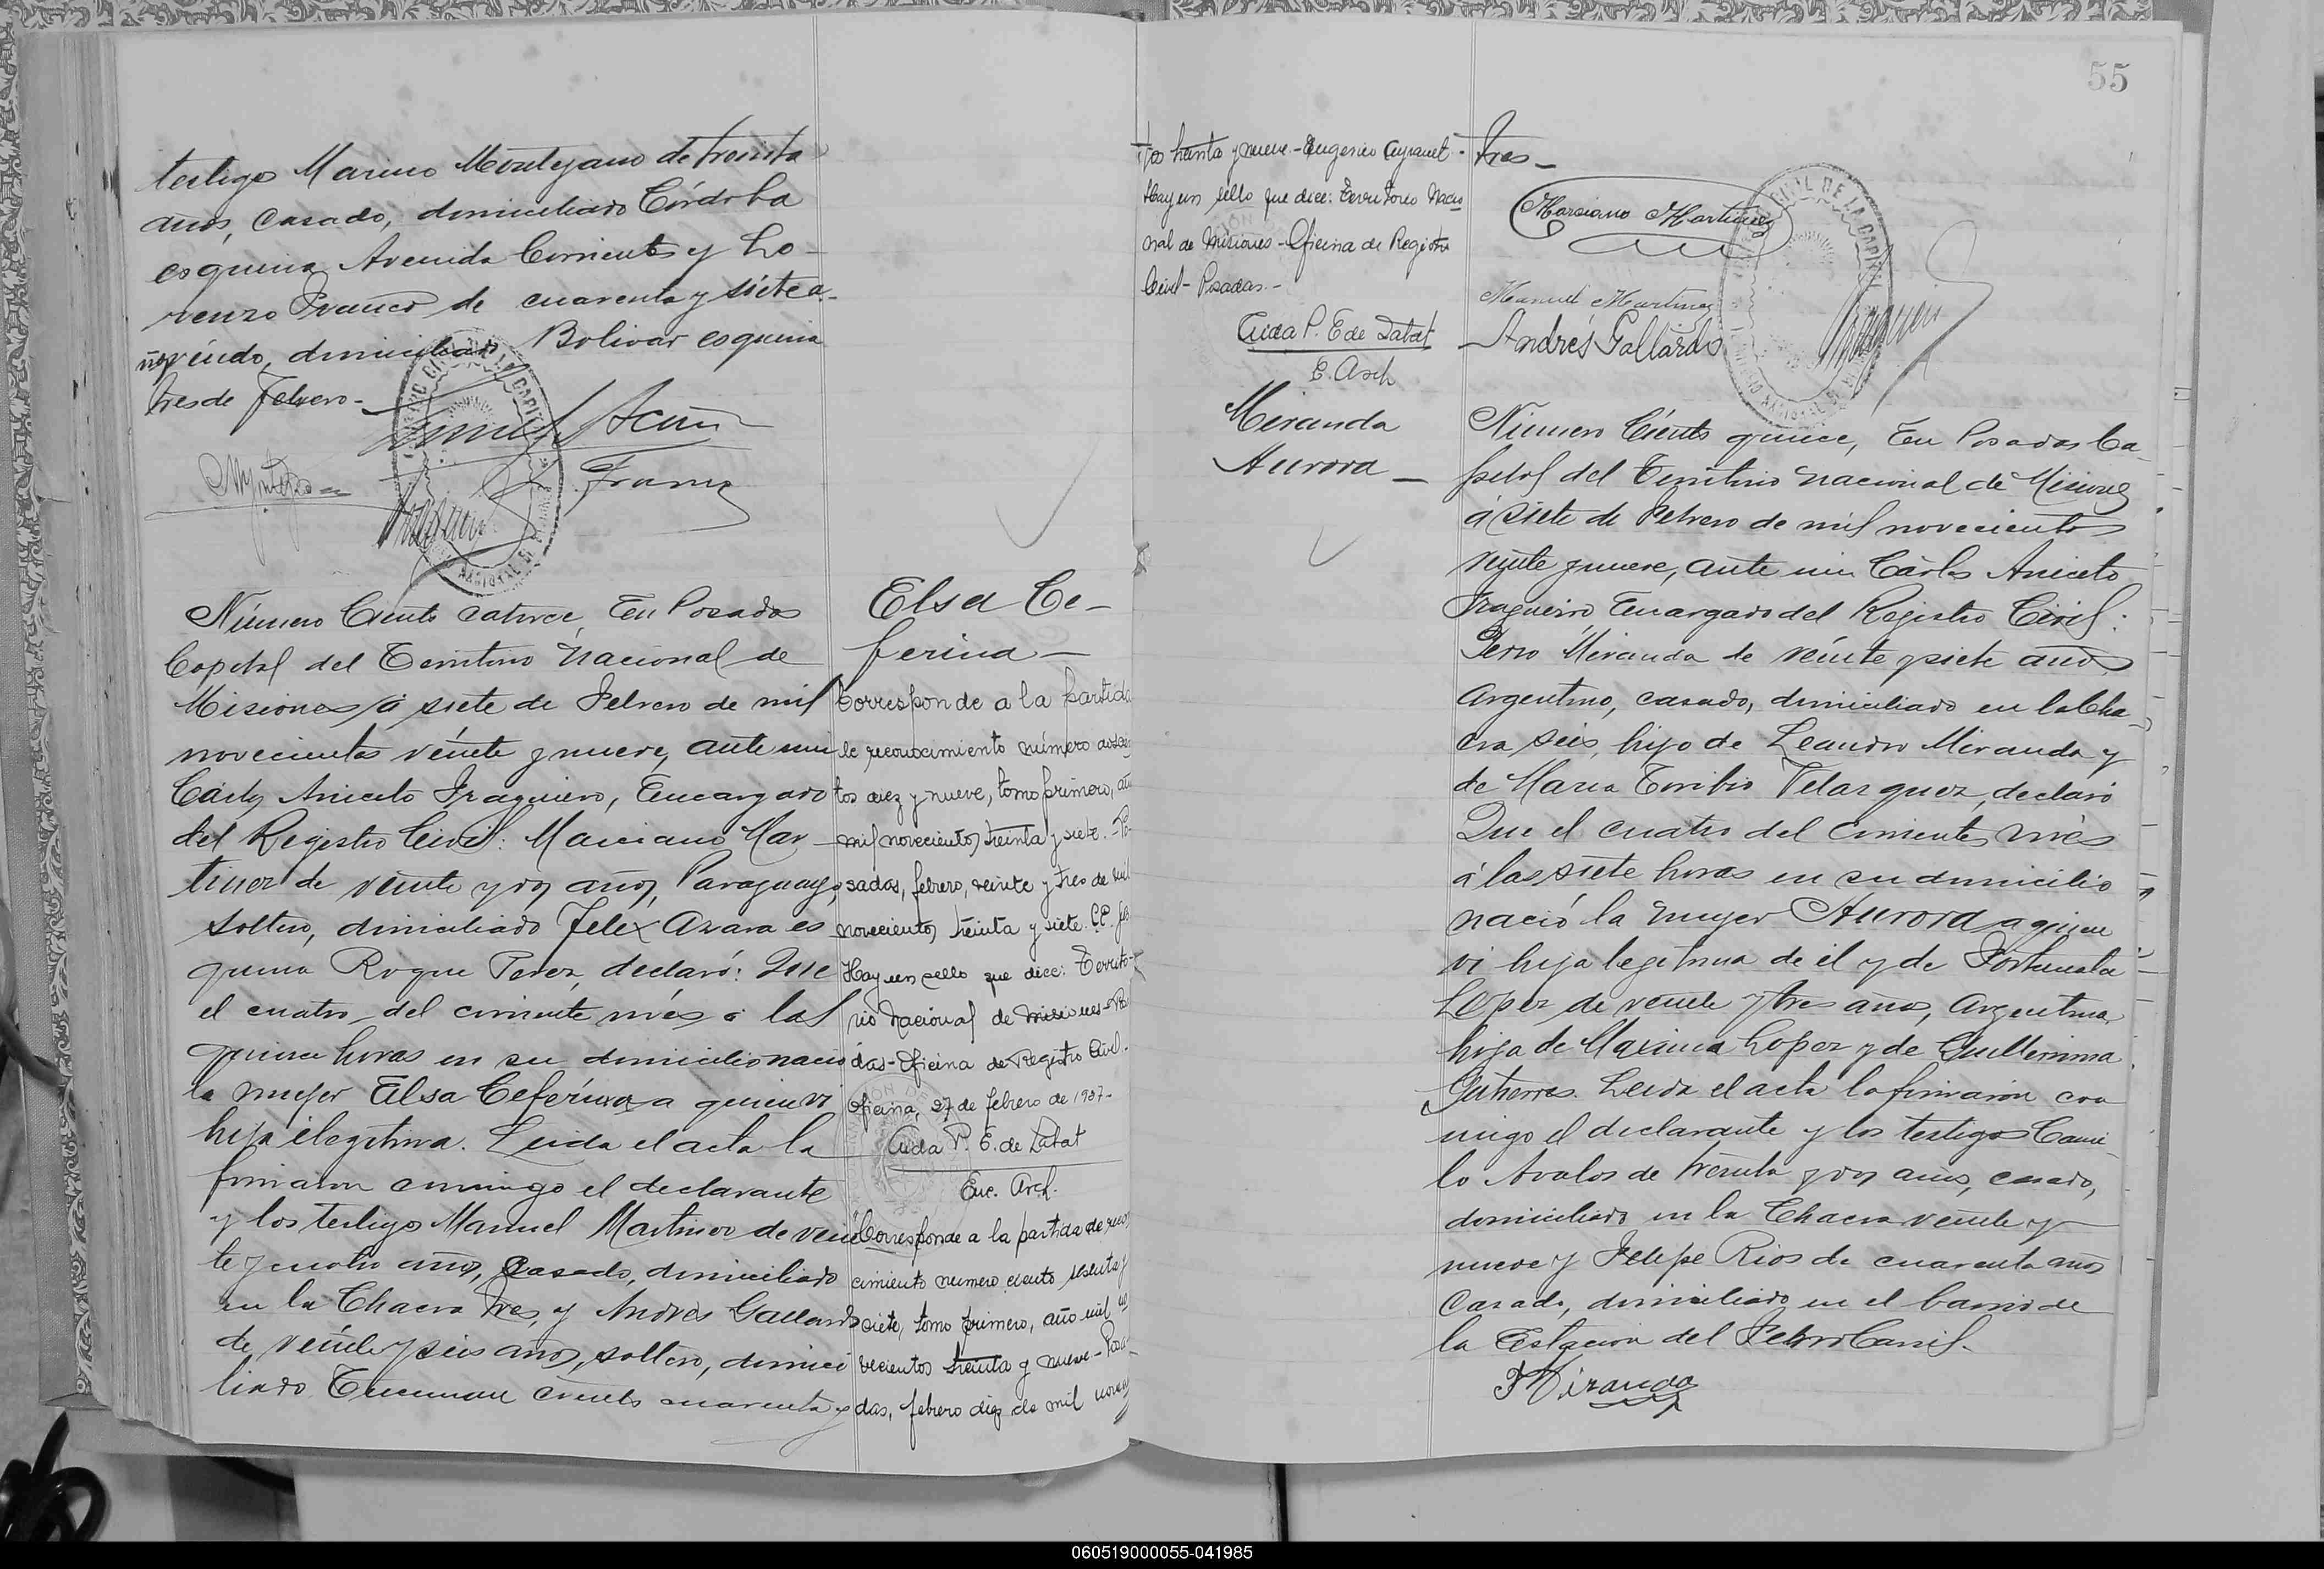 testigo Marino Montejano de treinta
años, casado, domiciliado Córdoba
esquina Avenida Corrientes y Lo-
renzo Franco de cuarenta y siete a-
ños, viudo, domiciliado Bolivar esquina
tres de Febrero-
Franco
Número Ciento catorce, En Posadas
Capital del Territorio Nacional de
Misiones, á siete de Febrero de mil
novecientos veinte y nueve, ante mi
Carlos Aniceto Fragueiro, Encargado
del Registro Civil: Marciano Mar-
tinez de veinte y dos años, Paraguayo,
soltero, domiciliado Felix Azara es-
quina Roque Perez, declaró: Que
el cuatro del corriente més á las
quince horas en su domicilio nació
la mujer Elsa Ceferina a quien vi
hija ilegítima. Leida el acta la
firmaron conmigo el declarante
y los testigos Manuel Martinez de vein
te y cuatro años, Casado, domiciliado
en la Chacra tres, y Andrés Gallardo
de veinte y seis años, soltero, domici
liado Tucuman ciento cuarenta y
Elsa Ce-
ferina-
Corresponde a la partida
de reconocimiento número doscien
tos diez y nueve, tomo primero, año
mil novecientos treinta y siete.- Po-
sadas, febrero, veinte y tres de mil
novecientos treinta y siete.
Hay un sello que dice: Territo-
rio Nacional de Misiones-Po
das-Oficina de Registro Civil.
Oficina, 27 de febrero de 1937-
Aida P. E. de Labat
Enc. Arch.
Corresponde a la partida de recono
cimiento numero ciento sesenta y
siete, tomo primero, año mil no
vecientos treinta y nueve- Posa-
das, febrero diez de mil novecien
55
tos treinta y nueve- Eugenio
Hay un sello que dice: Territorio Nacio
nal de Misiones- Oficina de Registro
Civil- Posadas.-
Aida P. E de Labat
E. Arch
tres-
Marciano Martinez
Manuel Martinez
Andrés Gallardo
Miranda
Aurora-
Número Ciento quince, En Posadas Ca-
pital del Territorio Nacional de Misiones
á siete de Febrero de mil novecientos
veinte y nueve, ante mi Cárlos Aniceto
Fragueiro, Encargado del Registro Civil:
Pedro Miranda de veinte y siete años
Argentino, casado, domiciliado en la Cha-
cra seis, hijo de Leandro Miranda y
de Maria Toribia Velazquez, declaró
Que el cuatro del corriente més
á las siete horas en su domicilio
nació la mujer Aurora a quien
vi hija legítima de él y de Fortunata
López de veinte y tres años, Argentina,
hija de Maxima Lopez y de Guillermina
Gutierres. Leida el acta la firmaron con
migo el declarante y los testigos Cami-
lo Avalos de treinta y dos años, casado,
domiciliado en la Chacra veinte y
nueve y Felipe Rios de cuarenta años
Casado, domiciliado en el barrio de
la Estación del Ferro Carril.
Miranda
060519000055-041985